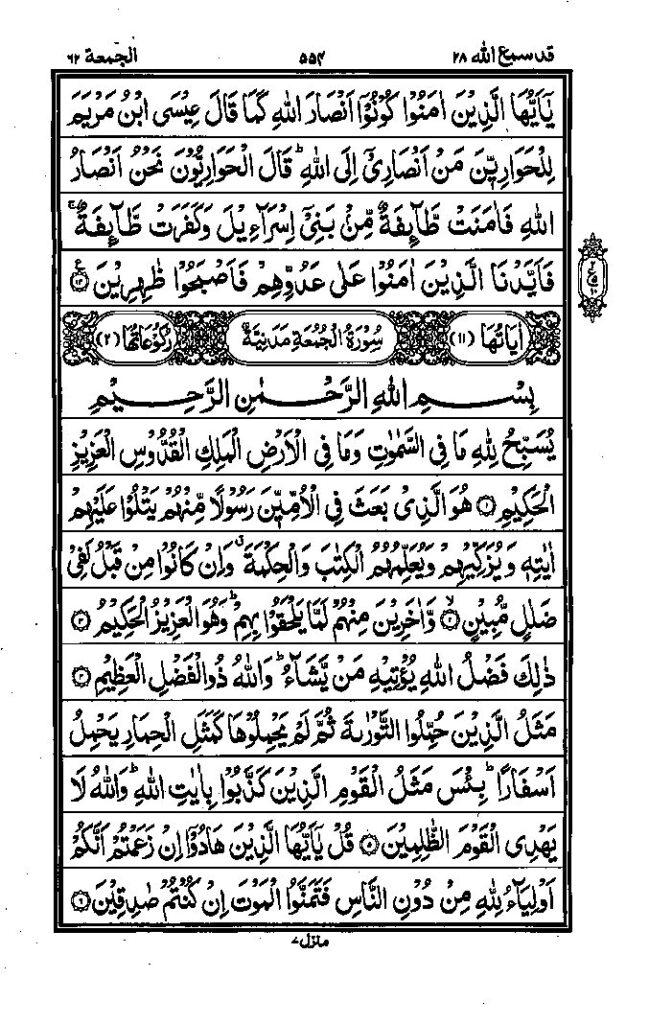 قد سمع الله ٢٨
٥٥٤
الجمعة ٦٢
يٰۤاَيُّهَا الَّذِيْنَ اٰمَنُوْا كُوْنُوْۤا اَنْصَارَ اللّٰهِ كَمَا قَالَ عِيْسَى ابْنُ مَرْيَمَ
لِلْحَوَارِيّٖنَ مَنْ اَنْصَارِيْۤ اِلَى اللّٰهِ ؕ قَالَ الْحَوَارِيُّوْنَ نَحْنُ اَنْصَارُ
اللّٰهِ فَاٰمَنَتْ طَّآئِفَةٌ مِّنْۢ بَنِيْۤ اِسْرَآءِيْلَ وَكَفَرَتْ طَّآئِفَةٌ ۚ
فَاَيَّدْنَا الَّذِيْنَ اٰمَنُوْا عَلٰى عَدُوِّهِمْ فَاَصْبَحُوْا ظٰهِرِيْنَ ۧ ﴿١٤﴾
اٰيَاتُهَا (١١)
سُوْرَةُ الْجُمُعَةِ مَدَنِيَّةٌ
رُكُوْعَاتُهَا (٢)
بِسْمِ اللّٰهِ الرَّحْمٰنِ الرَّحِيْمِ
يُسَبِّحُ لِلّٰهِ مَا فِي السَّمٰوٰتِ وَمَا فِي الْاَرْضِ الْمَلِكِ الْقُدُّوْسِ الْعَزِيْزِ
الْحَكِيْمِ ﴿١﴾ هُوَ الَّذِيْ بَعَثَ فِي الْاُمِّيّٖنَ رَسُوْلًا مِّنْهُمْ يَتْلُوْا عَلَيْهِمْ
اٰيٰتِهٖ وَيُزَكِّيْهِمْ وَيُعَلِّمُهُمُ الْكِتٰبَ وَالْحِكْمَةَ ۗ وَاِنْ كَانُوْا مِنْ قَبْلُ لَفِيْ
ضَلٰلٍ مُّبِيْنٍ ۙ ﴿٢﴾ وَّاٰخَرِيْنَ مِنْهُمْ لَمَّا يَلْحَقُوْا بِهِمْ ؕ وَهُوَ الْعَزِيْزُ الْحَكِيْمُ ﴿٣﴾
ذٰلِكَ فَضْلُ اللّٰهِ يُؤْتِيْهِ مَنْ يَّشَآءُ ؕ وَاللّٰهُ ذُو الْفَضْلِ الْعَظِيْمِ ﴿٤﴾
مَثَلُ الَّذِيْنَ حُمِّلُوا التَّوْرٰىةَ ثُمَّ لَمْ يَحْمِلُوْهَا كَمَثَلِ الْحِمَارِ يَحْمِلُ
اَسْفَارًا ؕ بِئْسَ مَثَلُ الْقَوْمِ الَّذِيْنَ كَذَّبُوْا بِاٰيٰتِ اللّٰهِ ؕ وَاللّٰهُ لَا
يَهْدِي الْقَوْمَ الظّٰلِمِيْنَ ﴿٥﴾ قُلْ يٰۤاَيُّهَا الَّذِيْنَ هَادُوْۤا اِنْ زَعَمْتُمْ اَنَّكُمْ
اَوْلِيَآءُ لِلّٰهِ مِنْ دُوْنِ النَّاسِ فَتَمَنَّوُا الْمَوْتَ اِنْ كُنْتُمْ صٰدِقِيْنَ ﴿٦﴾
منزل ٧